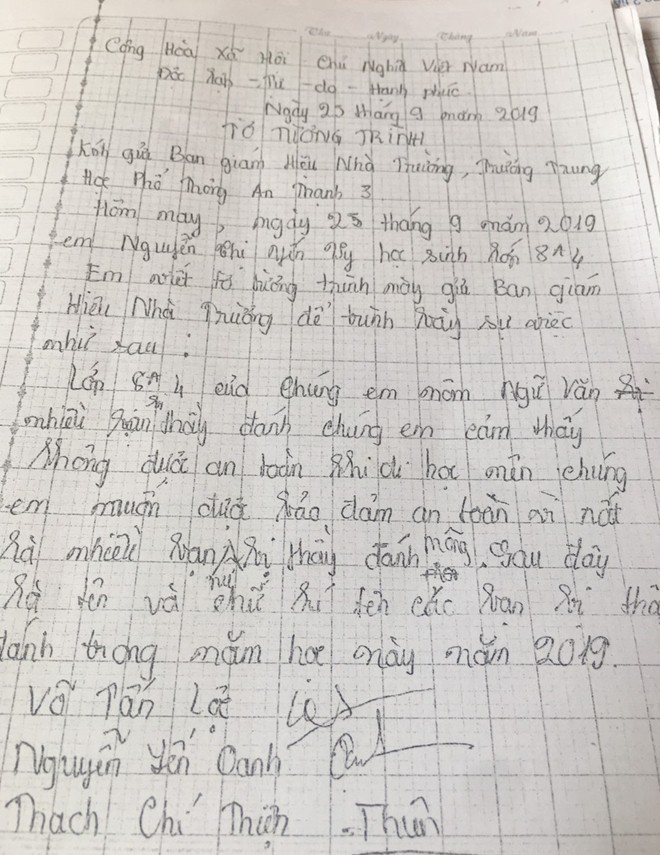 Thứ Ngày Tháng Năm
Cộng Hòa Xã Hội Chủ Nghĩa Việt Nam
Độc Lập - Tự - do - Hạnh phúc
Ngày 25 tháng 9 năm 2019
TỜ TƯỜNG TRÌNH
Kính gửi Ban giám Hiệu Nhà Trường, Trường Trung
Học Phổ Thông An Thạnh 3
Hôm nay, ngày 25 tháng 9 năm 2019
em Nguyễn Thị Yến Vy học sinh lớp 8A4
Em viết tờ tường trình này gửi Ban giám
Hiệu Nhà Trường để trình bày sự việc
như sau:
Lớp 8A4 của chúng em môn Ngữ Văn bị
nhiều bạn bị thầy đánh chúng em cảm thấy
không được an toàn khi đi học nên chúng
em muốn được bảo đảm an toàn vì rất
là nhiều bạn bị thầy đánh mông. Sau đây
là tên và chữ kí tên các bạn bị thầ
đánh trong năm học này năm 2019.
Võ Tấn Lộc
Nguyễn Yến Oanh
Thạch Chí Thiện